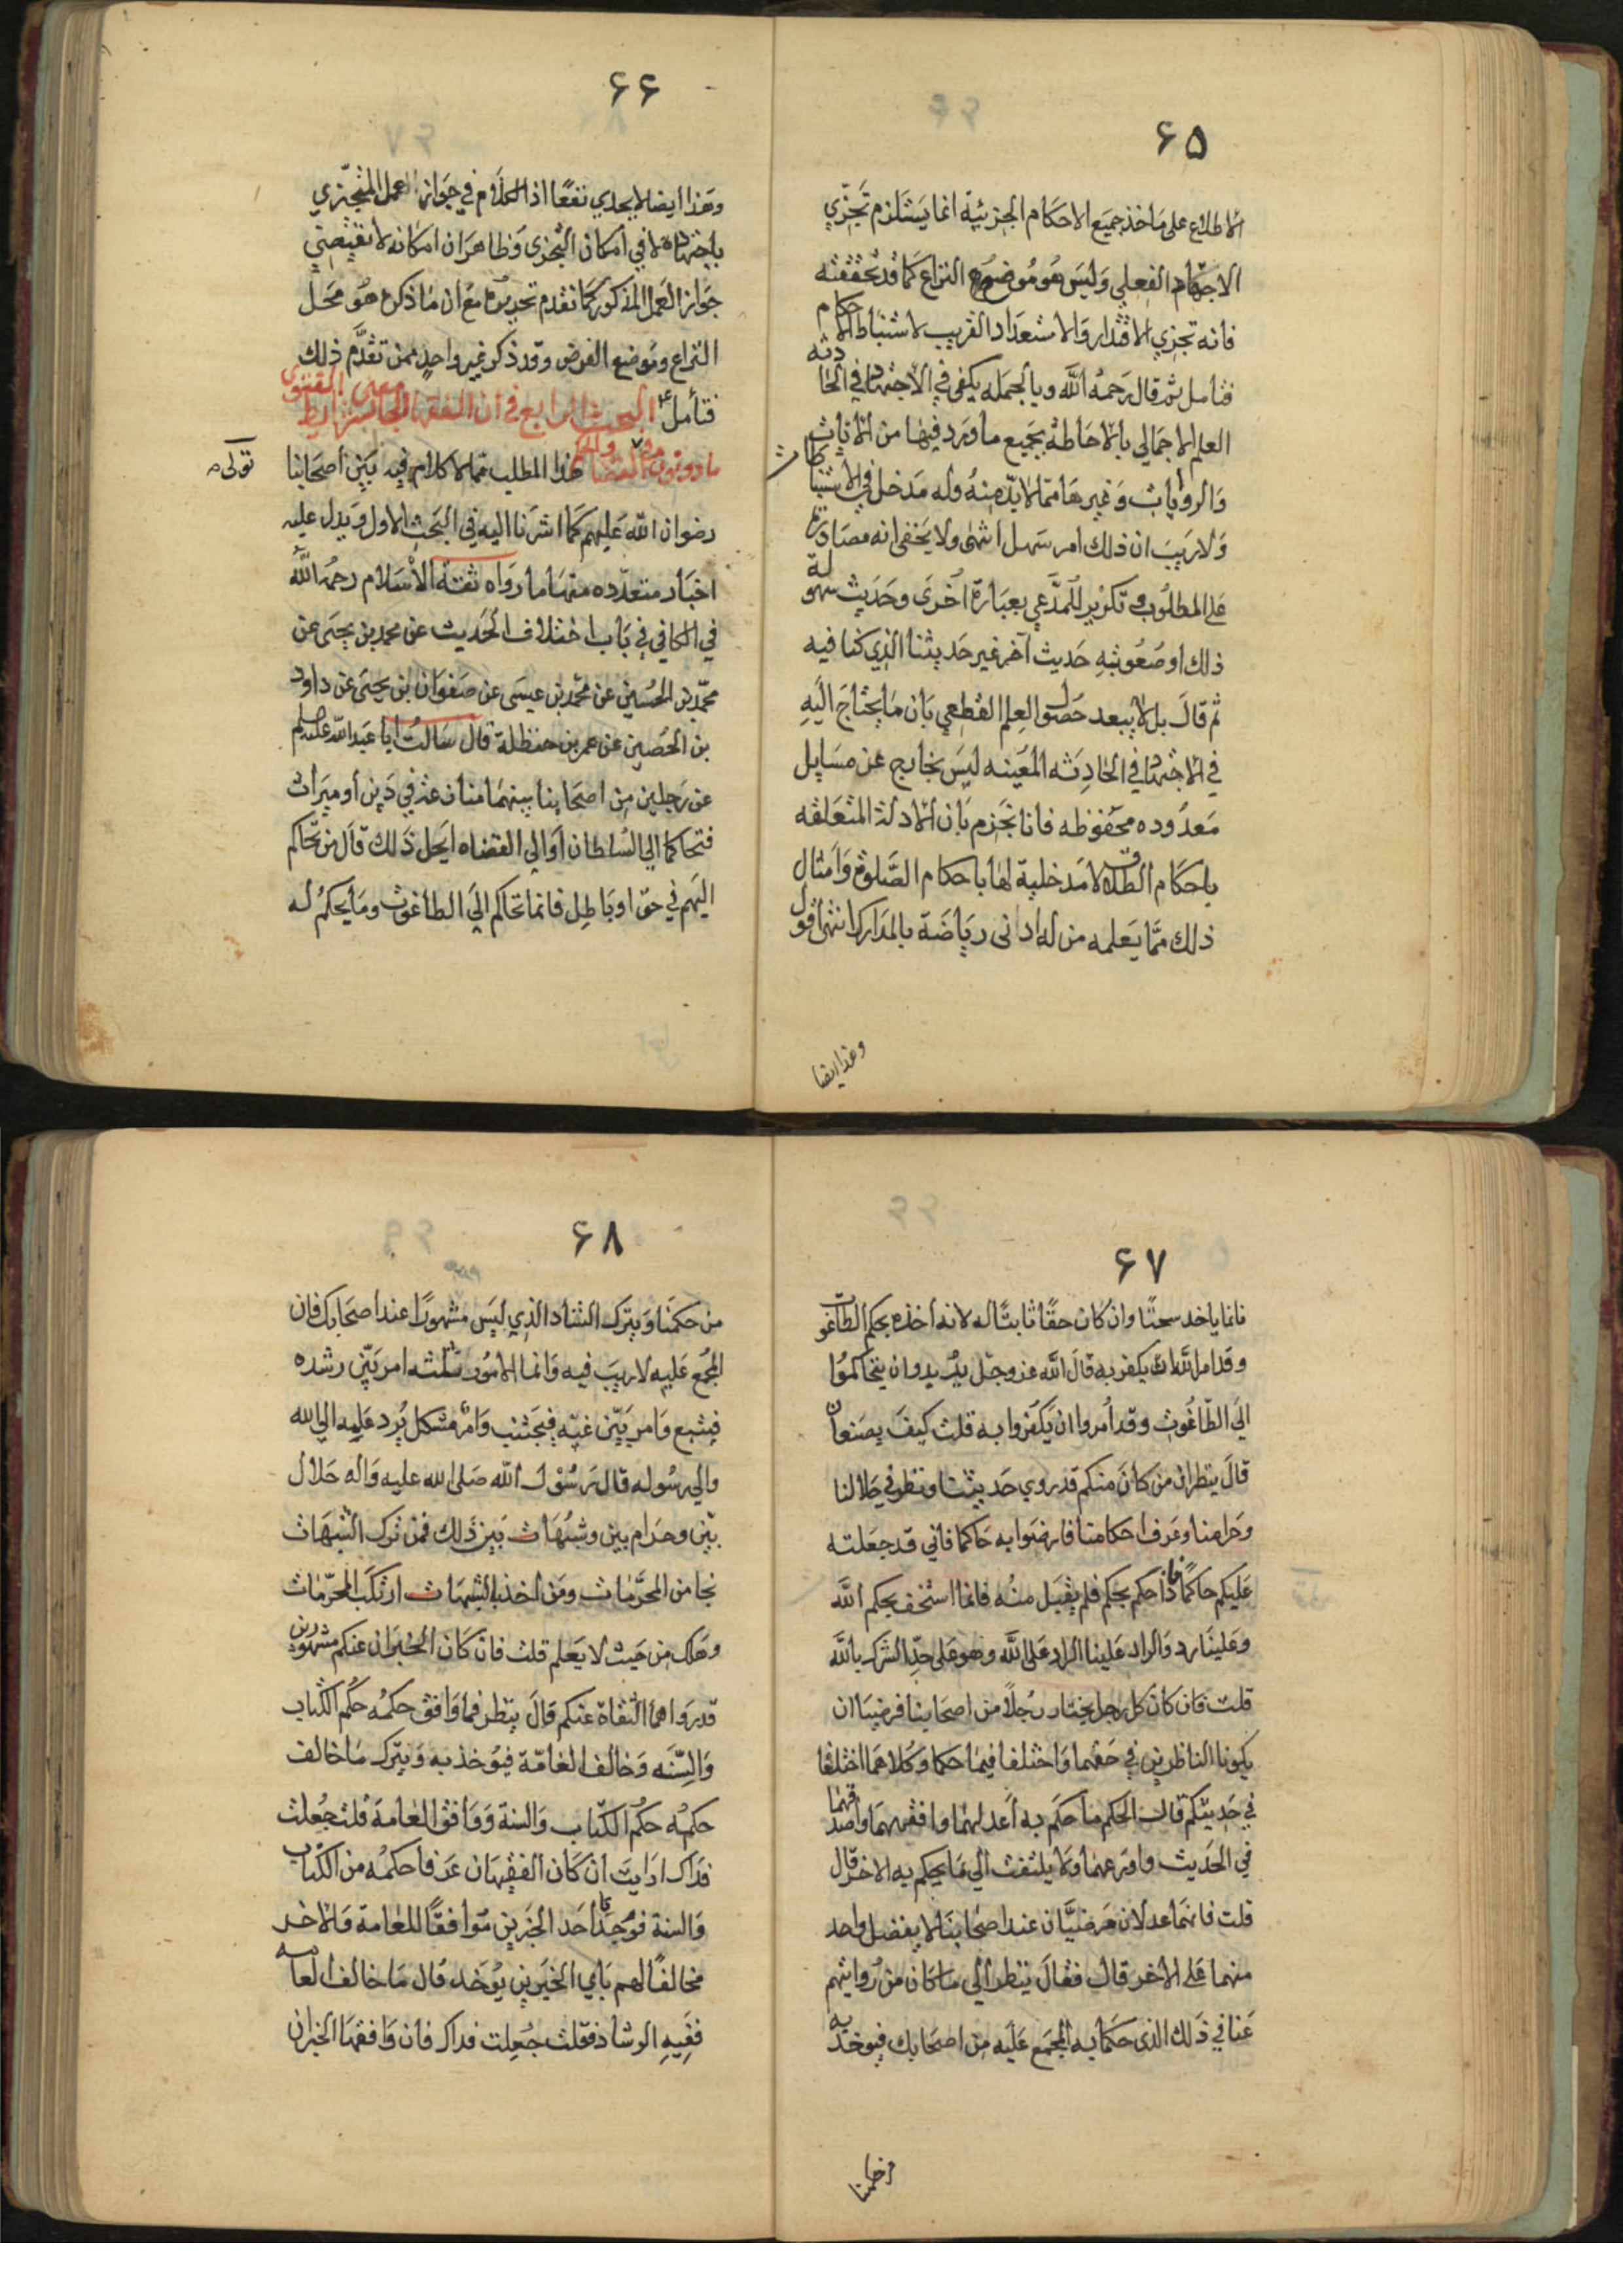 ۶۵
الاطلاع على مأخذ جميع الاحكام الجزئية انما يستلزم تجزي
الاجتهاد الفعلي وليس هو موضوع النزاع كما قد تحققته
فانه تجزي الاقتدار والاستعداد القريب لاستنباط الاحكام
فتأمل ثم قال رحمه الله وبالجمله يكفي في الاجتهاد في الحادثه
العلم الاجمالي بالاحاطة بجميع ما ورد فيها من الايات
والروايات وغيرها مما لابد منه وله مدخل في الاستنباطات
ولا ريب ان ذلك امر سهل انتهى ولا يخفى انه مصادرة
على المطلوب وتكرير للمدعي بعبارة اخرى وحديث سهولة
ذلك او صعوبته حديث آخر غير حديثنا الذي كنا فيه
ثم قال بل لا يبعد حصول العلم القطعي بان ما يحتاج اليه
في الاجتهاد في الحادثه المعينه ليس بخارج عن مسايل
معدوده محفوظه فانا نجزم بان الادلة المتعلقه
باحكام الطلاق لا مدخلية لها باحكام الصلوة وامثال
ذلك مما يعلمه من له ادنى رياضة بالمدارك انتهى اقول
وهذا ايضا
۶۶
وهذا ايضا لا يجدي نفعا اذ الكلام في جواز العمل المتجزي
باجتهاده لا في امكان التجزى وظاهر ان امكانه لا تقتضي
جواز العمل المذكور كما تقدم تحريره مع ان ما ذكره هو محل
النزاع وموضع الفرض وقد ذكر غير واحد ممن تقدم ذلك
فتأمل البحث الرابع في ان الفقه الجامع لشرايط معنى الفتوى
ماذونون في القضا هذا المطلب مما لا كلام فيه بين اصحابنا
رضوان الله عليهم كما اشرنا اليه في البحث الاول ويدل عليه
اخبار متعدده منها ما رواه ثقة الاسلام رحمه الله
في الكافي في باب اختلاف الحديث عن محمد بن يحيى عن
محمد بن الحسين عن محمد بن عيسى عن صفوان بن يحيى عن داود
بن الحصين عن عمر بن حنظلة قال سالت ابا عبد الله عليه السلم
عن رجلين من اصحابنا بينهما منازعة في دين او ميراث
فتحاكما الي السلطان او الي القضاه ايحل ذلك قال من تحاكم
اليهم في حق او باطل فانما تحاكم الي الطاغوت وما يحكم له
۶۷
فانما ياخد سحتا وان كان حقا ثابتا له لانه اخذه بحكم الطاغوت
وقد امر الله ان يكفر به قال الله عز وجل يريدون ان يتحاكموا
الي الطاغوت وقد امروا ان يكفروا به قلت كيف يصنعان
قال ينظران من كان منكم قد روي حديثنا ونظر في حلالنا
وحرامنا وعرف احكامنا فارضوا به حاكما فاني قد جعلته
عليكم حاكما فاذا حكم بحكم فلم يقبل منه فانما استخف بحكم الله
وعلينا رد والراد علينا الراد على الله وهو على حد الشرك بالله
قلت فان كان كل رجل يختار رجلا من اصحابنا فرضيا ان
يكونا الناظرين في حقهما واختلفا فيما حكما وكلاهما اختلفا
في حديثكم قال الحكم ما حكم به اعدلهما وافقههما واصدقهما
في الحديث واورعهما ولا يلتفت الي ما يحكم به الاخر قال
قلت فانهما عدلان مرضيان عند اصحابنا لا يفضل واحد
منهما على الاخر قال فقال ينظر الي ما كان من روايتهم
عنا في ذلك الذي حكما به المجمع عليه من اصحابك فيوخذ به
من حكمنا
۶۸
من حكمنا ويترك الشاذ الذي ليس مشهورا عند اصحابك فان
المجمع عليه لا ريب فيه وانما الامور ثلثه امر بين رشده
فيتبع وامر بين غيه فيجتنب وامر مشكل يرد علمه الي الله
والي رسوله قال رسول الله صلى الله عليه واله حلال
بين وحرام بين وشبهات بين ذلك فمن ترك الشبهات
نجا من المحرمات ومن اخذ بالشبهات ارتكب المحرمات
وهلك من حيث لا يعلم قلت فان كان الخبران عنكم مشهورين
قد رواهما الثقاة عنكم قال ينظر فما وافق حكمه حكم الكتاب
والسنه وخالف العامة فيوخذ به ويترك ما خالف
حكمه حكم الكتاب والسنة ووافق العامة قلت جعلت
فداك ارايت ان كان الفقيهان عرفا حكمه من الكتاب
والسنة فوجدنا احد الخبرين موافقا للعامة والاخر
مخالفا لهم باي الخبرين يوخد قال ما خالف العامه
ففيه الرشاد فقلت جعلت فداك فان وافقها الخبران